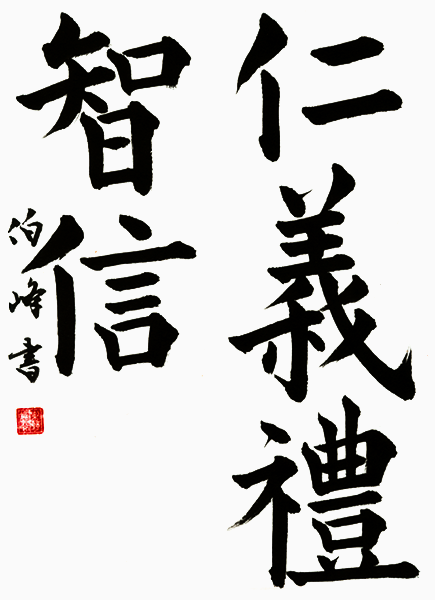 仁義禮
智信
伯峰書